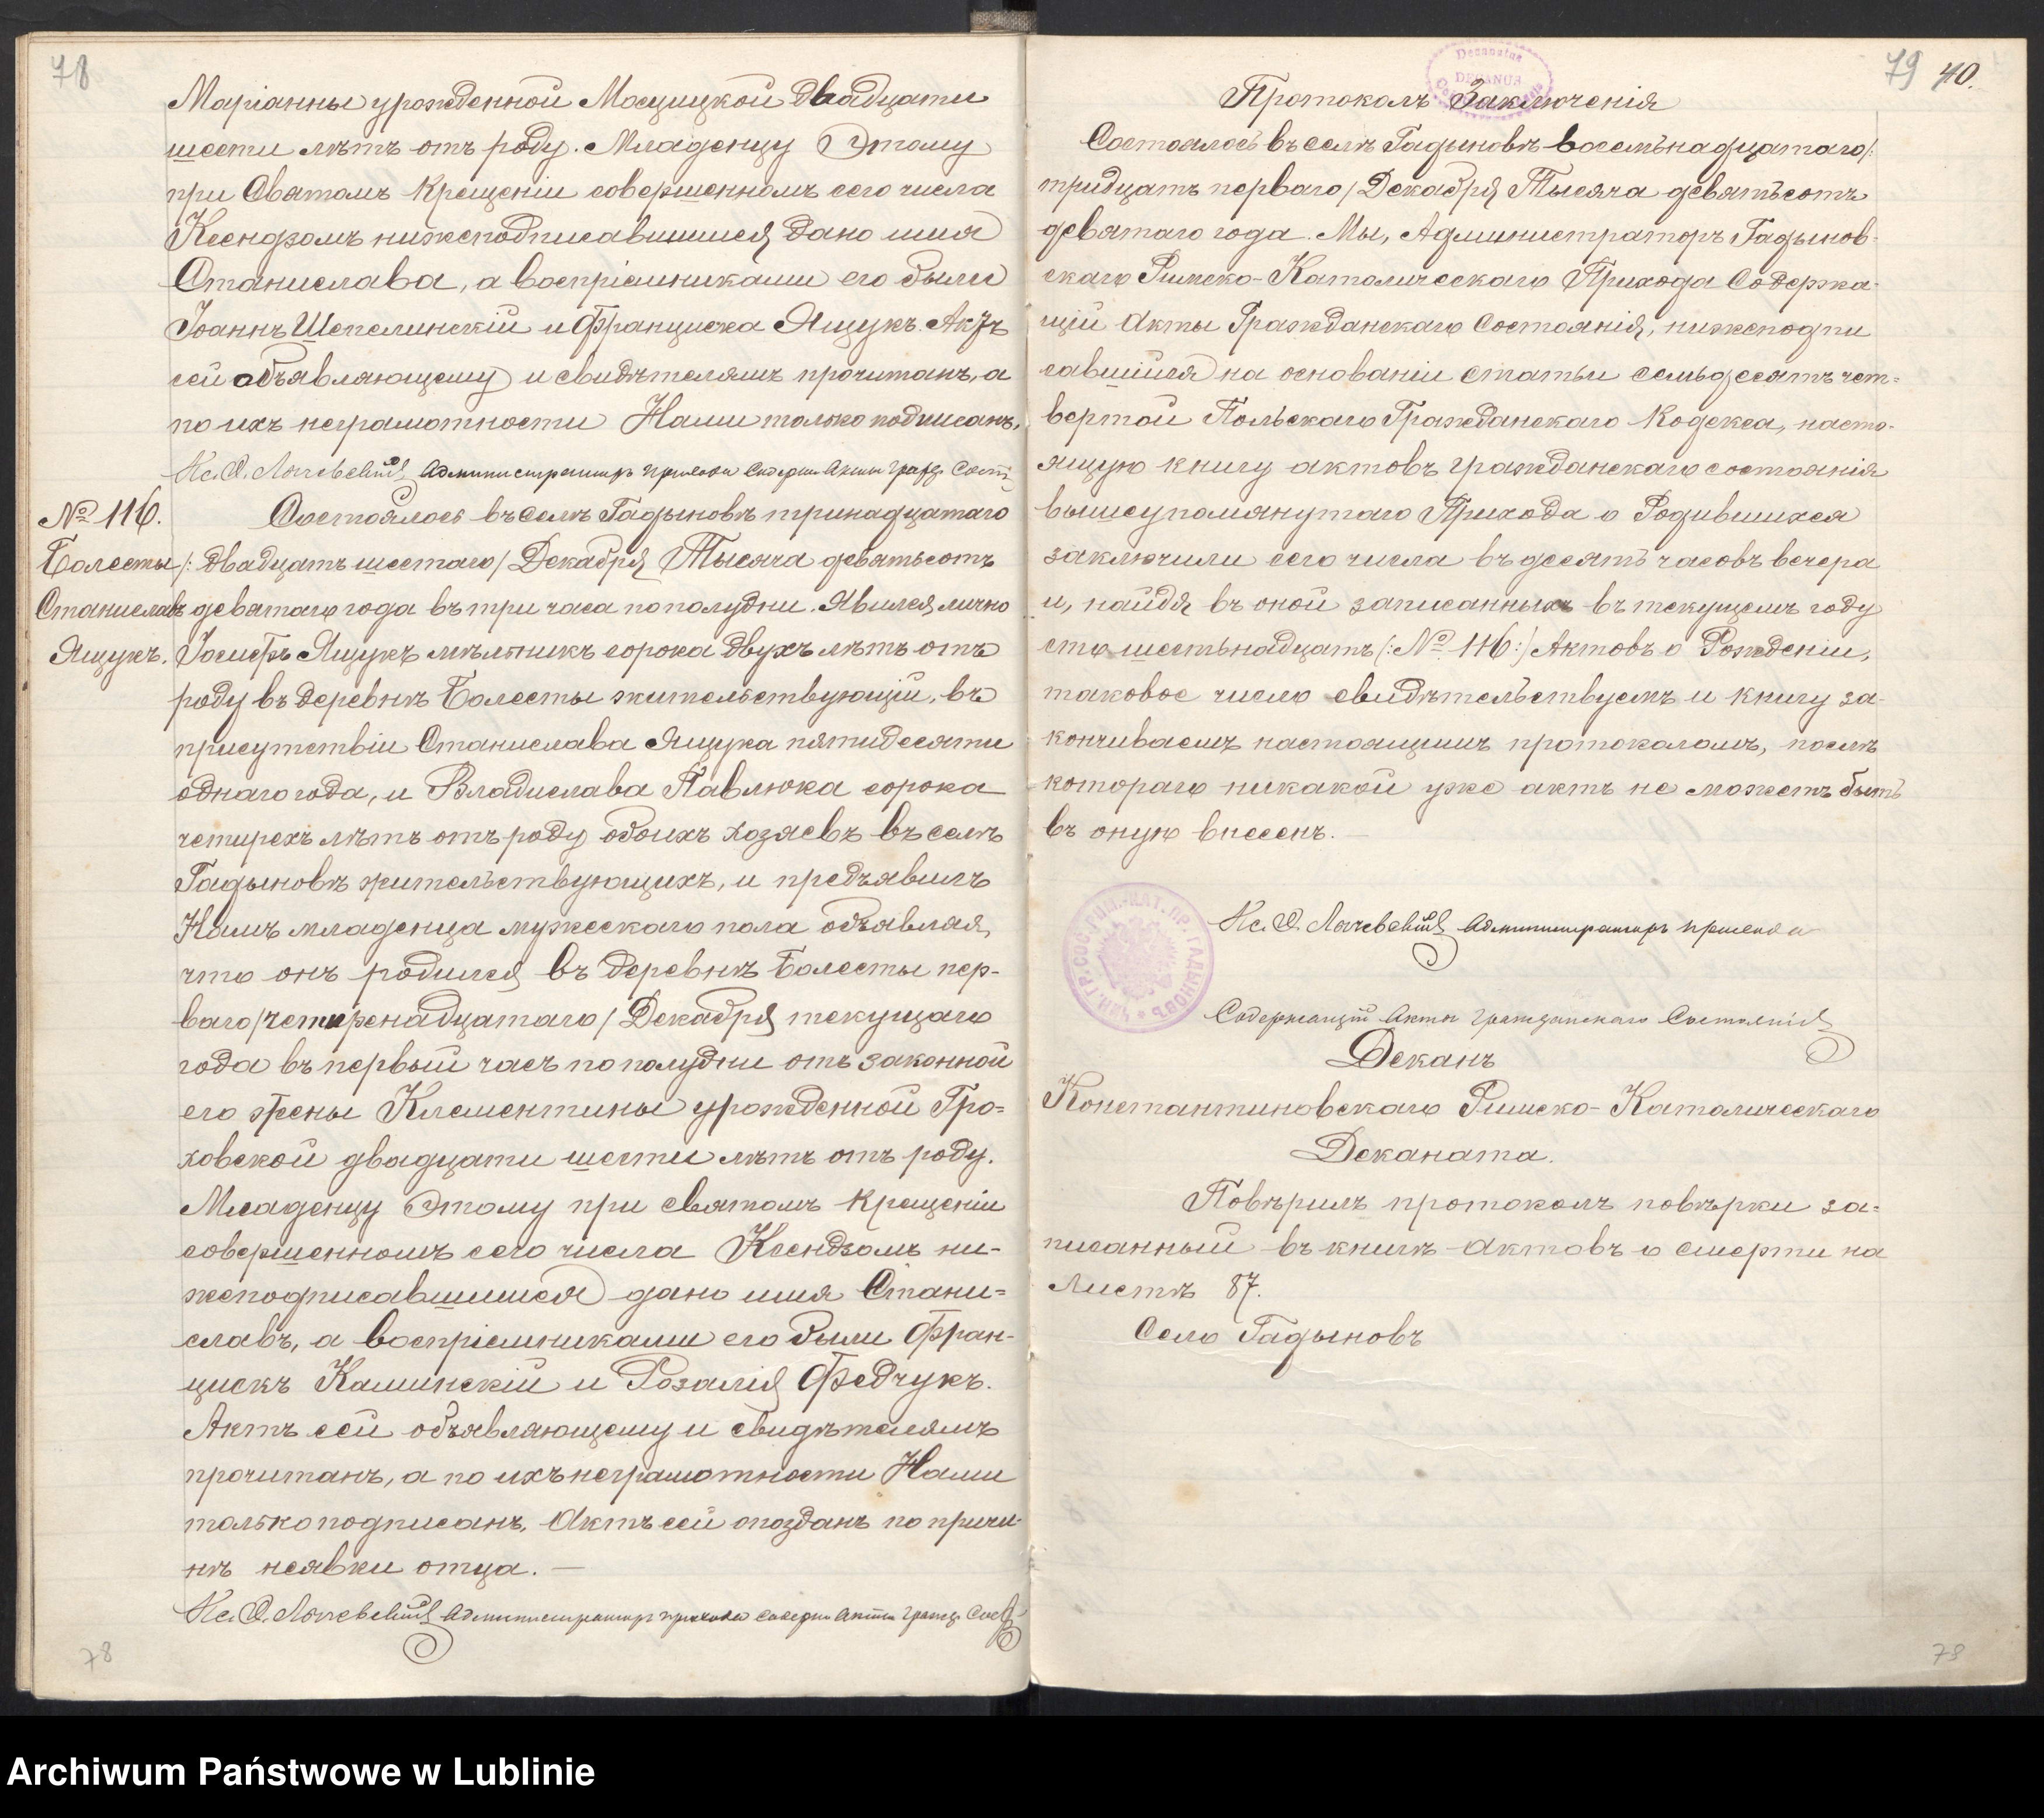 78
Маріанны урожденной Мосцицкой двадцати
шести лѣтъ отъ роду. Младенцу этому
при Святомъ Крещеніи совершенномъ сего числа
Ксендзомъ нижеподписавшимся дано имя
Станислава, а воспріемниками его были
Іоаннъ Шепелинскій и Франциска Ящукъ. Актъ
сей объявляющему и свидѣтелямъ прочитанъ, а
по ихъ неграмотности Нами только подписанъ.
Кс. О. Администраторъ прихода Содерж Акты Гражд. Сост.
№ 116.
Болесты
Станиславъ
Ящукъ.
Состоялось въ селѣ Гадыновѣ тринадцатаго
/: двадцать шестаго / Декабря Тысяча девятьсотъ
девятаго года въ три часа по полудни. Явился лично
Іосифъ Ящукъ мѣльникъ сорока двухъ лѣтъ отъ
роду въ деревнѣ Болесты жительствующій, въ
присутствіи Станислава Ящука пятидесяти
однаго года, и Владислава Павлюка сорока
четирехъ лѣтъ отъ роду обоихъ хозяевъ въ селѣ
Гадыновѣ жительствующихъ, и предъявилъ
Намъ младенца мужескаго пола объявляя,
что онъ родился въ деревнѣ Болесты пер-
ваго / четиренадцатаго / Декабря текущаго
года въ первый часъ по полудни отъ законной
его жены Клементины урожденной Гро-
ховской двадцати шести лѣтъ отъ роду.
Младенцу Этому при святомъ Крещеніи
совершенномъ сего числа Ксендзомъ ни-
жеподписавшимся дано имя Стани=
славъ, а воспріемниками его были Фран-
цискъ Каминскій и Розалія Федчукъ.
Актъ сей объявляющему и свидѣтелямъ
прочитанъ, а по ихъ неграмотности Нами
только подписанъ. Актъ сей опозданъ по причи-
нѣ неявки отца. —
Кс. О. Администраторъ прихода Содерж Акты Гражд. Сост
78
79 40.
Decanatus
Протоколъ Заключенія
Состоялось въ селѣ Гадыновѣ восемьнадцатаго /:
тридцать перваго / Декабря Тысяча девятьсотъ
девятаго года. Мы, Администраторъ Гадынов-
скаго Римско-Католическаго Прихода Содержа-
щій Акты Гражданскаго Состоянія, нижеподпи
савшійся на основаніи статьи семьдесятъ чет-
вертой Польскаго Гражданскаго Кодекса, насто-
ящую книгу актовъ гражданскаго состоянія
вышеупомянутаго Прихода о Родившихся
заключили сего числа въ десять часовъ вечера
и, найдя въ оной записанныхъ въ текущемъ году
сто шестьнадцать /: № 116 :/ Актовъ о Рожденіи,
таковое число свидѣтельствуемъ и книгу за-
кончиваемъ настоящимъ протоколомъ, послѣ
котораго никакой уже актъ не можетъ быть
въ оную внесенъ. —
Кс. О. Администраторъ прихода
Содержащій Акты Гражданскаго Состоянія
Деканъ
Константиновскаго Римско-Католическаго
Деканата.
Повѣрилъ протоколъ повѣрки за-
писанный въ книгѣ Актовъ о смерти на
Листѣ 87.
Село Гадыновъ
Archiwum Państwowe w Lublinie